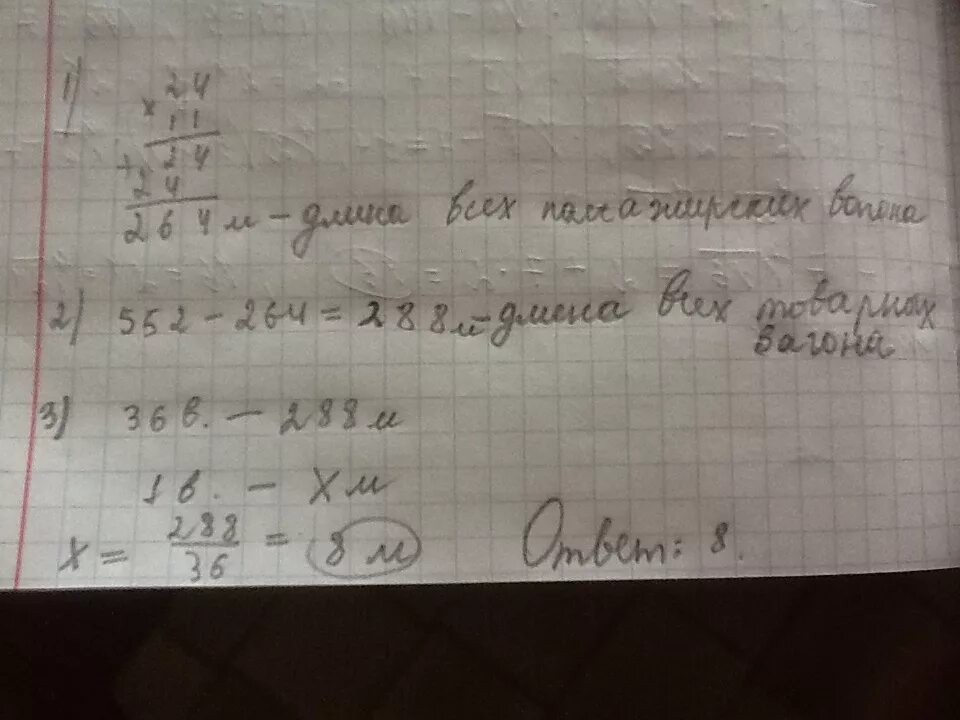 1) 24
× 11
+ 24
24
264 м – длина всех пассажирских вагона
2) 552 – 264 = 288 м – длина всех товарных
вагона
3) 36 в. – 288 м
1 в. – х м
х = 288/36 = 8 м Ответ: 8.